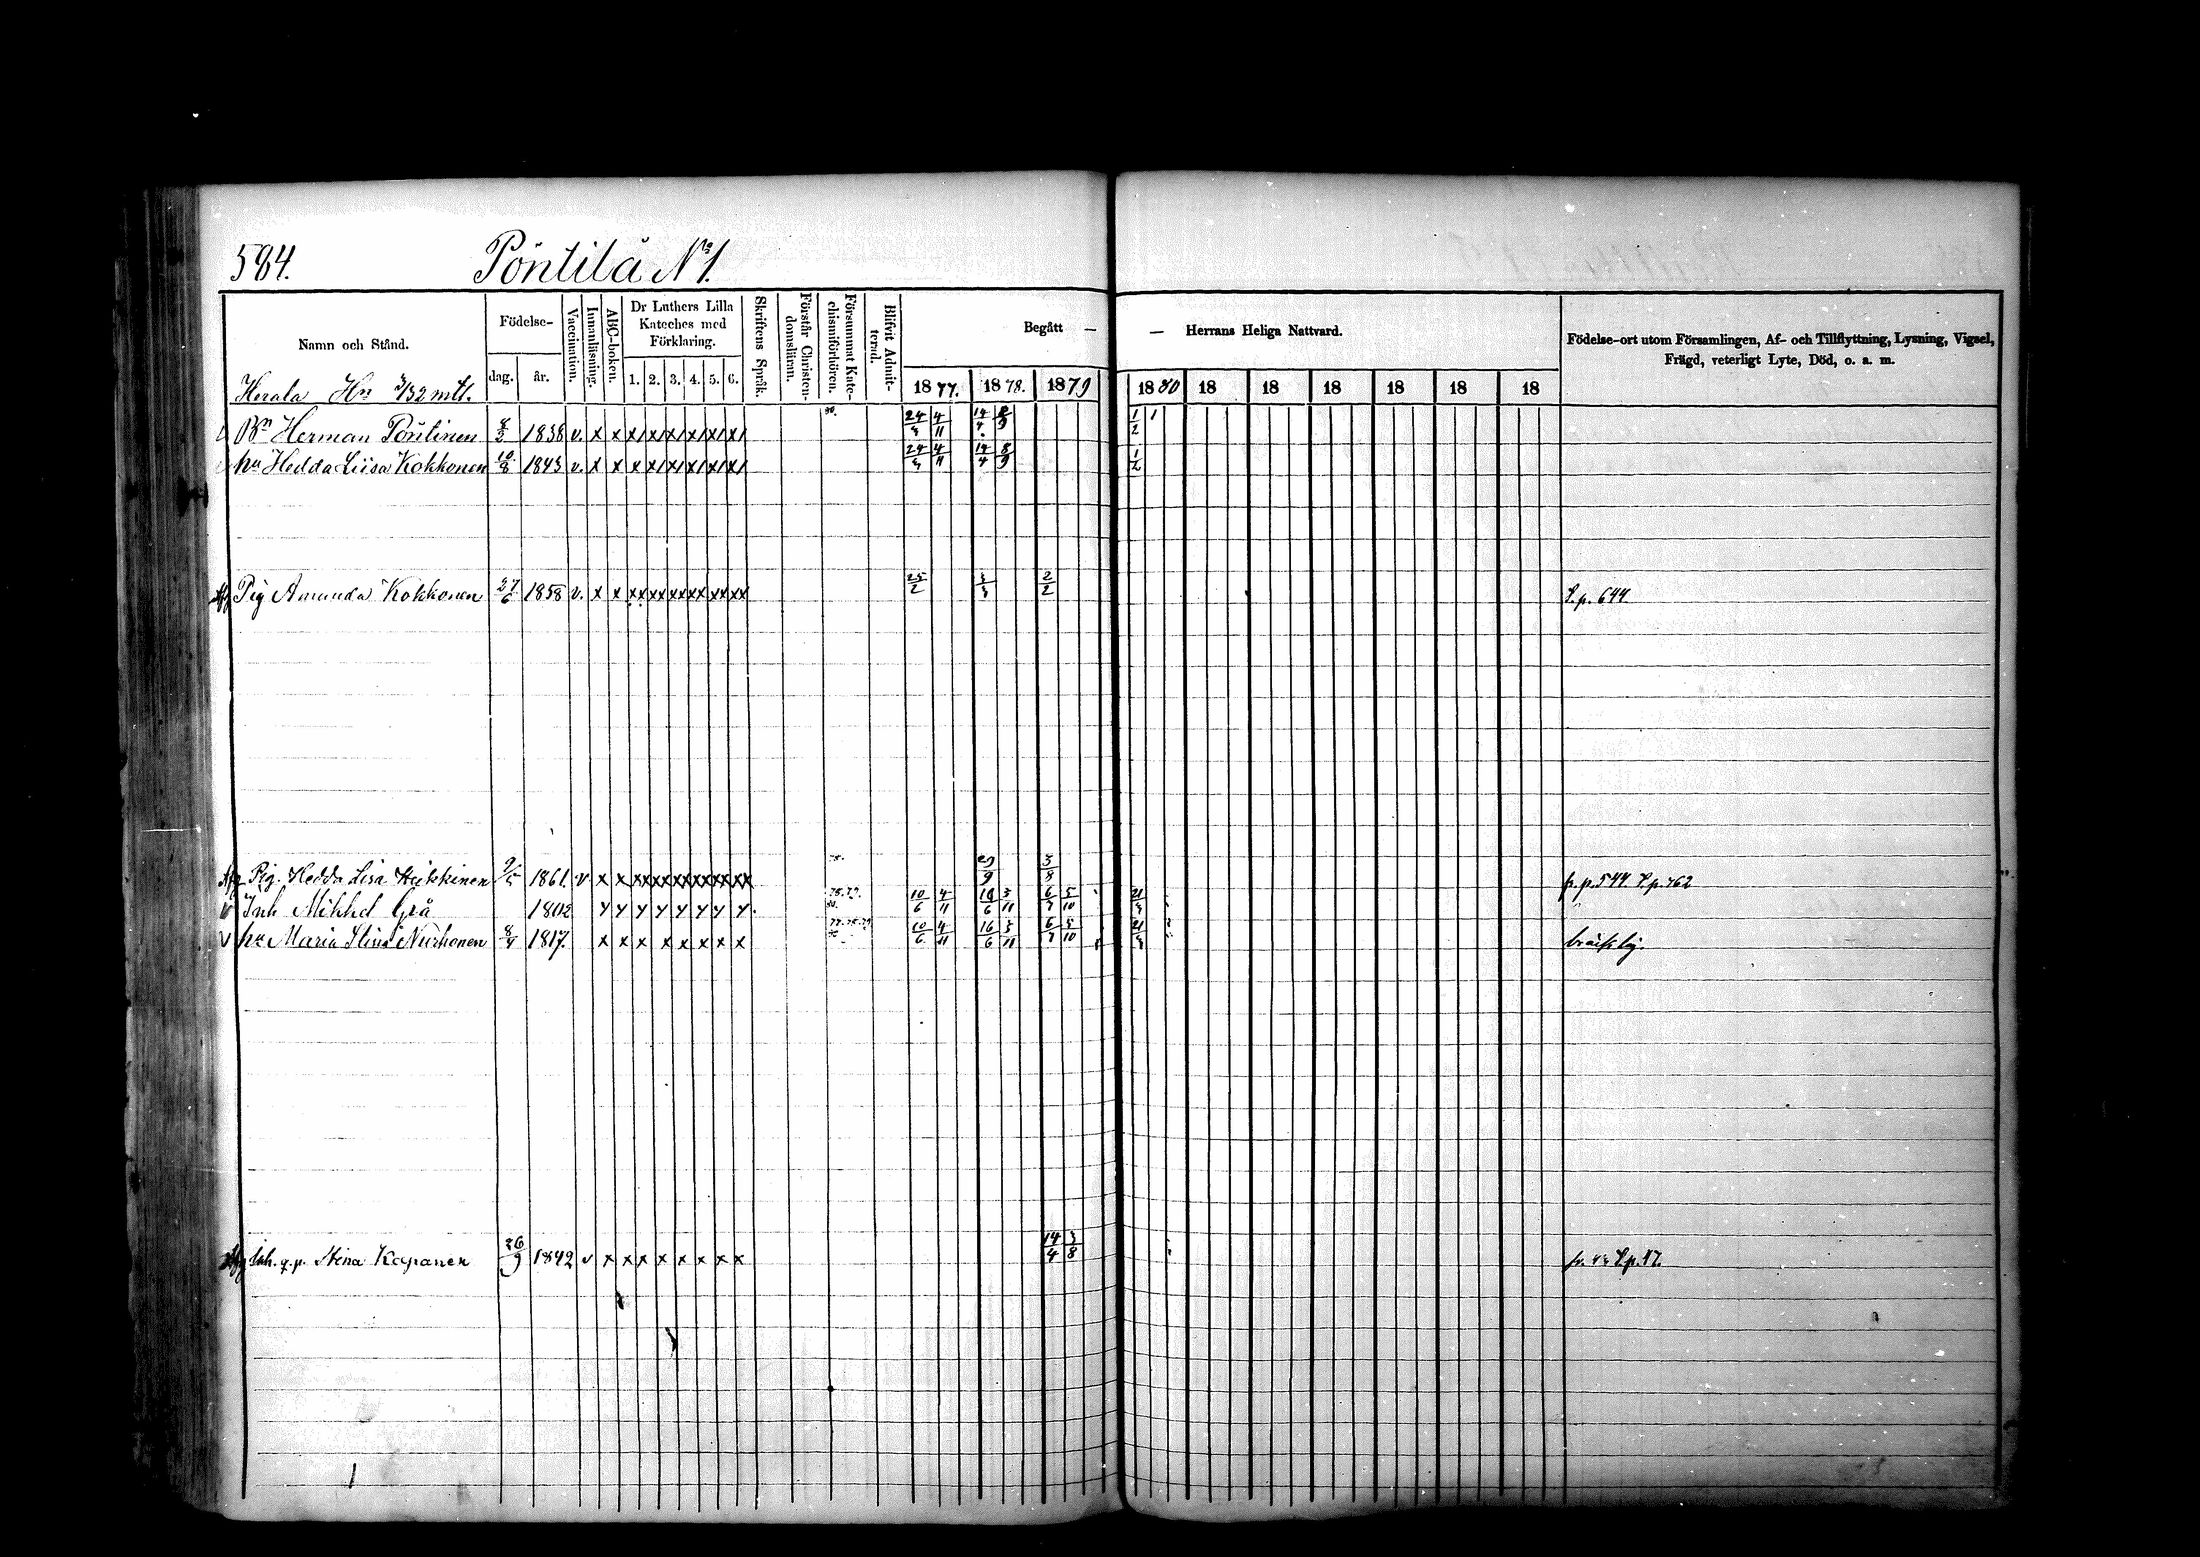 584. Pöntilä No 1.
Namn och Stånd.
Födelse-
dag. år.
Vaccination.
Innanläsning.
ABC-boken.
Dr Luthers Lilla Kateches med Förklaring.
1. 2. 3. 4. 5. 6.
Skriftens Språk.
Förstår Christendomsläran.
Försummat Katechismiförhören.
Blifvit Admitterad.
Begått — — Herrans Heliga Nattvard.
1877. 1878. 1879 1880 18 18 18 18 18 18
Födelse-ort utom Församlingen, Af- och Tillflyttning, Lysning, Vigsel, Frägd, veterligt Lyte, Död, o. a. m.
Herala Hn 3/32 mtl.
Bn Herman Pöntinen 8/3 1838 v. x x x/ x/ x/ x/ x/ x/ 80. 24/3 4/11 14/4 8/9 1/2 1
hu Hedda Liisa Kokkonen 10/8 1843 v. x x x x/ x/ x/ x/ x/ 24/3 4/11 14/4 8/9 1/2
Pig Amanda Kokkonen 27/6 1858 v. x x xx xx xx xx xx xx 25/2 3/3 2/2 S.p. 644.
Pig. Hedda Lisa Heikkinen 9/5 1861. v x x xx xx xx xx xx xx 29/9 3/8 fr. p. 544 S.p. 762
Inh Mikkel Grå 1802 y y y y y y y y. 10/6 4/11 16/6 3/11 6/7 5/10 21/3
hu Maria Stina Nurhonen 8/4 1817. x x x x x x x x 10/6 4/11 16/6 3/11 6/7 5/10 21/3 bräcklig.
Inh. q.p. Stina Kapanen 26/9 1842 v x x x x x x x x 14/4 3/8 S.p. 17.